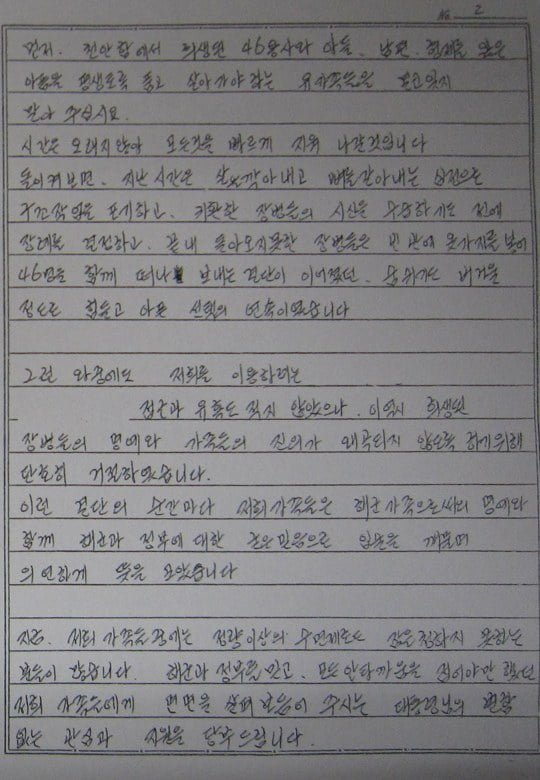 No 2
먼저. 천안함에서 희생된 46용사와 아들. 남편. 형제를 잃은
아픔을 평생토록 품고 살아가야 하는 유가족들을 잊지
말아 주십시요.
시간은 오래지않아 모든것을 빠르게 지워 나갈것입니다
돌이켜보면, 지난 시간은 살을깎아내고 뼈를갈아내는 심정으로
구조작업을 포기하고. 귀환한 장병들의 시신을 수습하기도 전에
장례를 결정하고. 끝내 돌아오지못한 장병들은 빈 관에 옷가지를 넣어
46명을 함께 떠나 보내는 결단이 이어졌던. 숨쉬기도 버거울
정도로 힘들고 아픈 선택의 연속이었습니다
그런 와중에도 저희를 이용하려는
접근과 유혹도 적지 않았으나. 이역시 희생된
장병들의 명예와 가족들의 진의가 왜곡되지 않도록 하기위해
단호히 거절하였습니다.
이런 결단의 순간마다 저희가족들은 해군가족으로써의 명예와
함께 해군과 정부에 대한 굳은믿음으로 입술을 깨물며
의연하게 뜻을 모았습니다
지금. 저희 가족들중에는 정량이상의 수면제로도 잠을청하지 못하는
분들이 많습니다. 해군과 정부를 믿고. 모든 안타까움을 접어야만 했던
저희 가족들에게 면면을 살펴 주시는 대통령님의 변함
없는 관심과 지원을 당부드립니다.